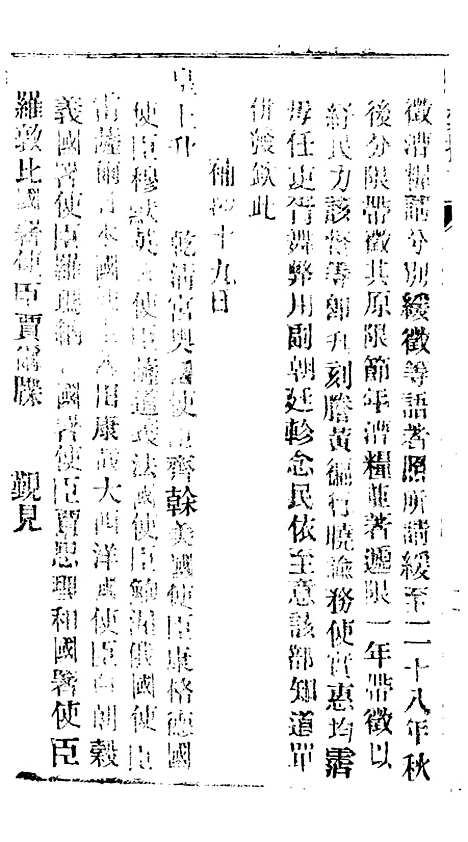 徵漕糧請分別緩徵等語著照所請緩至二十八年秋
後分限帶徵其原限節年漕糧並著遞限一年帶徵以
紓民力該督等卽刊刻謄黃徧行曉諭務使實惠均霑
毋任吏胥舞弊用副朝廷軫念民依至意該部知道單
併發欽此
補 十九日
皇上升 乾清宮奧國使臣齊幹美國使臣康格德國
使臣穆默英 使臣薩道義法國使臣鮑渥俄國使臣
雷薩爾日本國 使臣 用康哉大西洋國使臣白朝穀
義國署使臣羅瑪納 國署使臣賈思理和國署使臣
羅敦比國署使臣賈爾牒 覲見